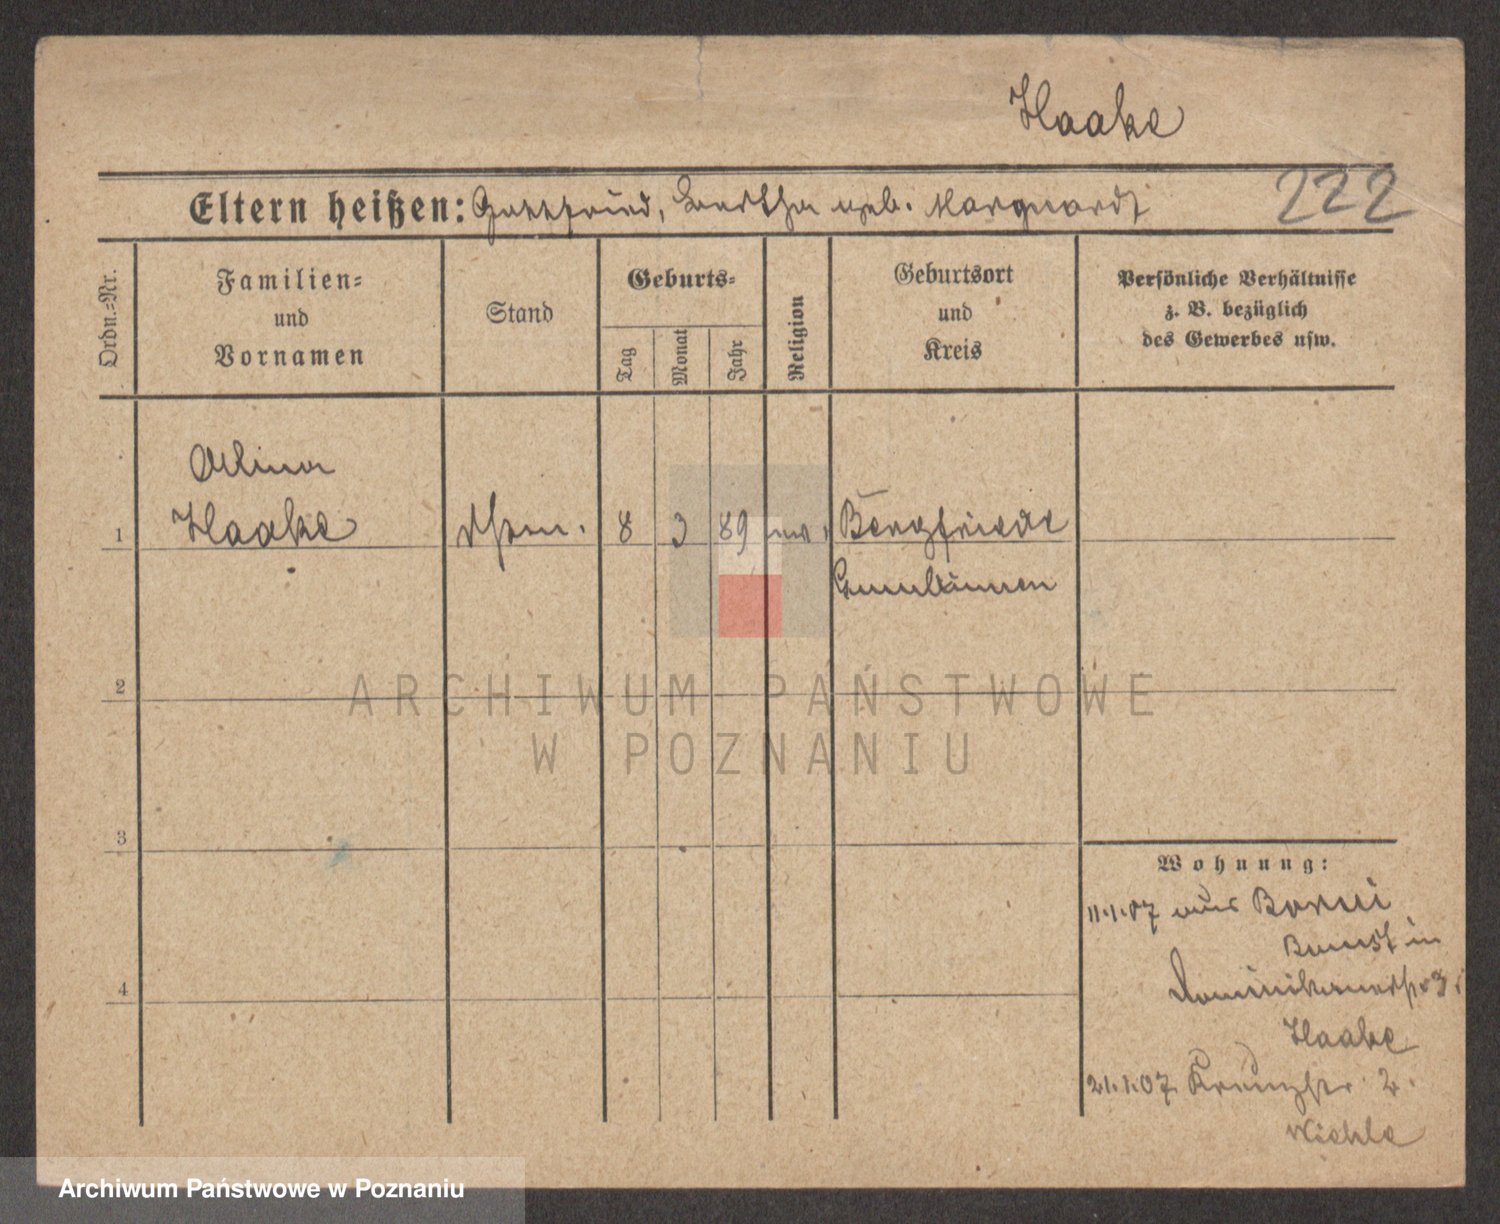 Haake
Eltern heißen: Gottfried, Bertha geb. Marquardt
222
Ordn.=Nr.
Familien=
und
Vornamen
Stand
Geburts=
Tag
Monat
Jahr
Religion
Geburtsort
und
Kreis
Persönliche Verhältnisse
z. B. bezüglich
des Gewerbes usw.
Alina
1 Haake 8 3 89 ev. Bergfriede
Gumbinnen
2
ARCHIWUM PAŃSTWOWE
W POZNANIU
3
Wohnung:
11.1.07 aus Borui
Bomst in
4
Dominikanerstr 3
Haake
21.1.07 Kreuzstr. 2.
Archiwum Państwowe w Poznaniu